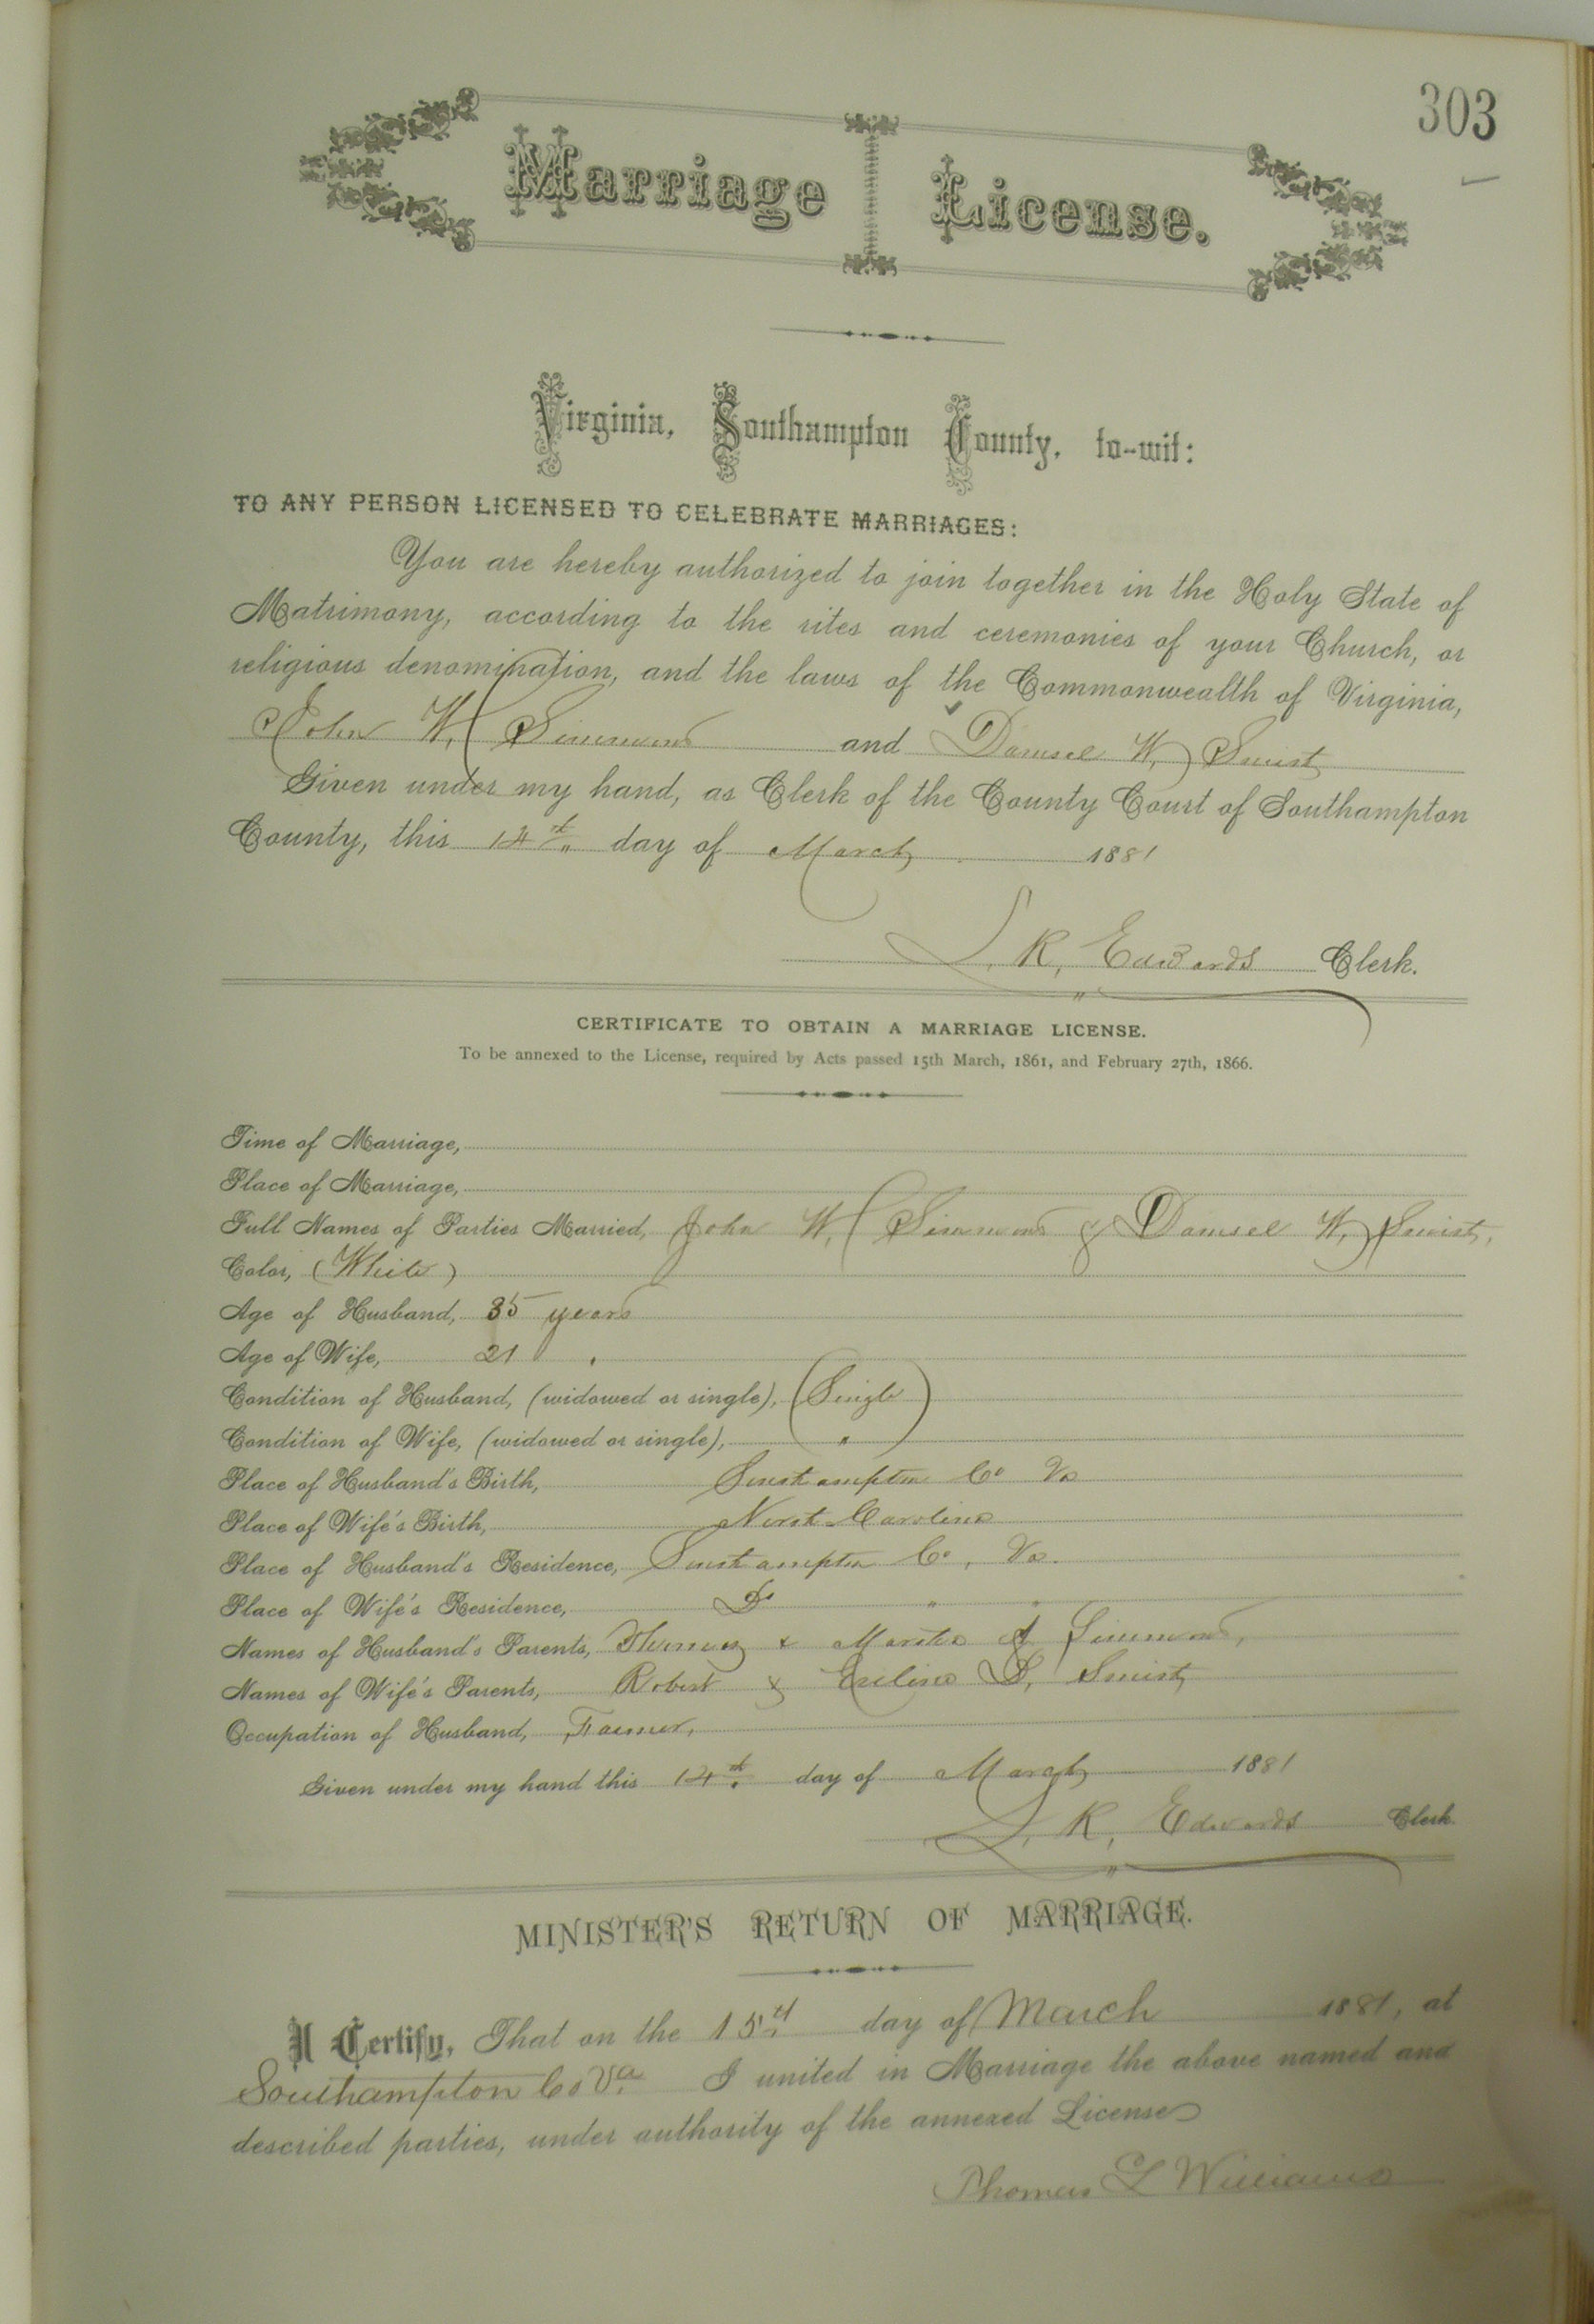 303
Marriage License.
Virginia, Southampton County, to-wit:
TO ANY PERSON LICENSED TO CELEBRATE MARRIAGES:
You are hereby authorized to join together in the Holy State of
Matrimony, according to the rites and ceremonies of your Church, or
religious denomination, and the laws of the Commonwealth of Virginia,
John W. Simmons and Damsel W.
Given under my hand, as Clerk of the County Court of Southampton
County, this 14th day of March 1881
L. R. Edwards Clerk.
CERTIFICATE TO OBTAIN A MARRIAGE LICENSE.
To be annexed to the License, required by Acts passed 15th March, 1861, and February 27th, 1866.
Time of Marriage,
Place of Marriage,
Full Names of Parties Married, John W. Simmons & Damsel W.
Color, (White)
Age of Husband, 35 years
Age of Wife, 21 "
Condition of Husband, (widowed or single), (Single)
Condition of Wife, (widowed or single), "
Place of Husband's Birth, Southampton Co Va
Place of Wife's Birth, North Carolina
Place of Husband's Residence, Southampton Co, Va.
Place of Wife's Residence, Do " "
Names of Husband's Parents, & Simmons,
Names of Wife's Parents, Robert &
Occupation of Husband, Farmer,
Given under my hand this 14th day of March 1881
L. R. Edwards Clerk
MINISTER'S RETURN OF MARRIAGE.
I Certify, That on the 15th day of March 1881, at
Southampton Co Va. I united in Marriage the above named and
described parties, under authority of the annexed License
Thomas L Williams